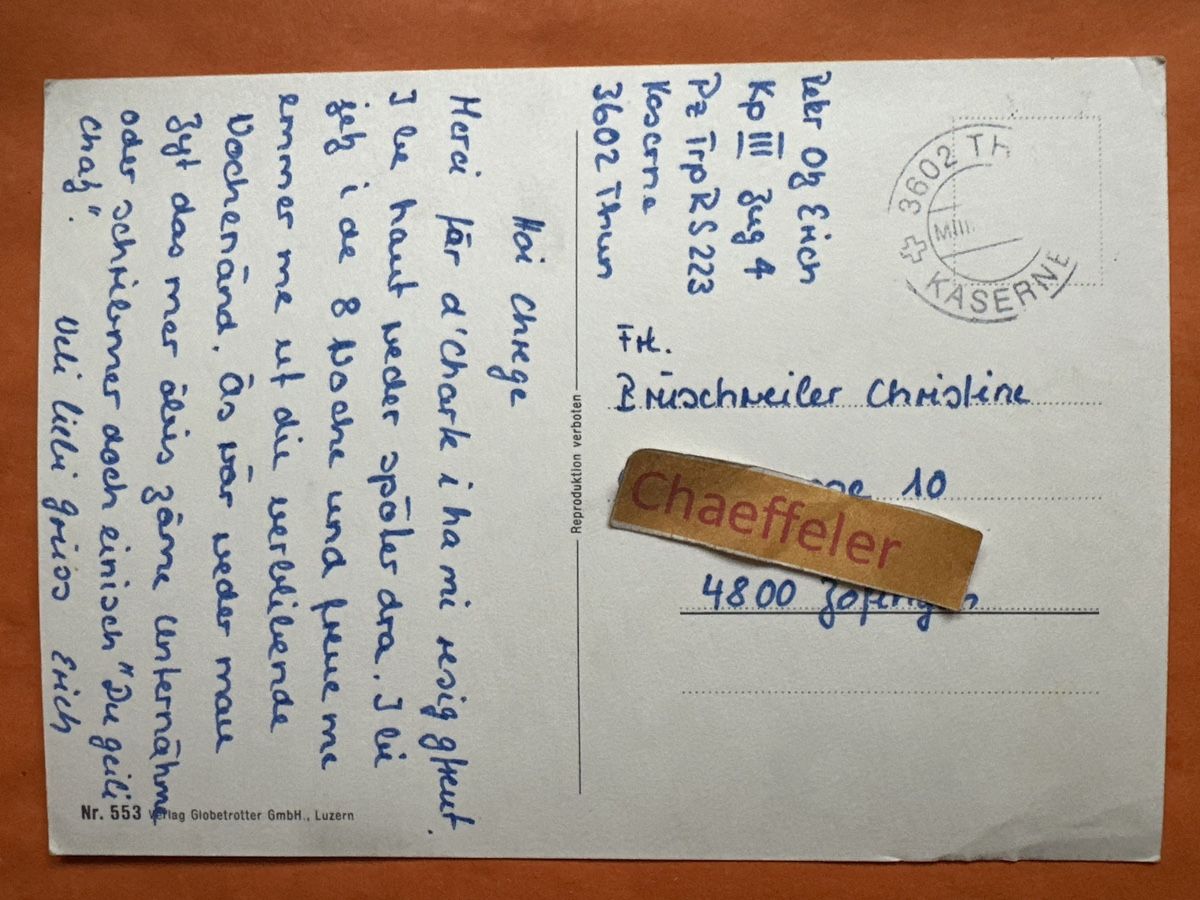 Hoi Chrege
Merci för d'Charte i ha mi resig gfreut.
I be haut weder spöter dra. I bi
jetz i de 8 Woche und freue me
emmer me uf die verbliibende
Wochenänd. Äs wär weder mau
Zyt das mer öbis zäme unternähme
oder schriibmer doch einisch "Du geili
Chatz".
Veli liebi grüess Erich
Rekr Otz Erich
Kp III Zug 4
Pz Trp RS 223
Kaserne
3602 Thun
3602 TH
KASERNE
Frl.
Brüschweiler Christine
10
Chaeffeler
4800 Zofingen
Reproduktion verboten
Nr. 553 Verlag Globetrotter GmbH., Luzern